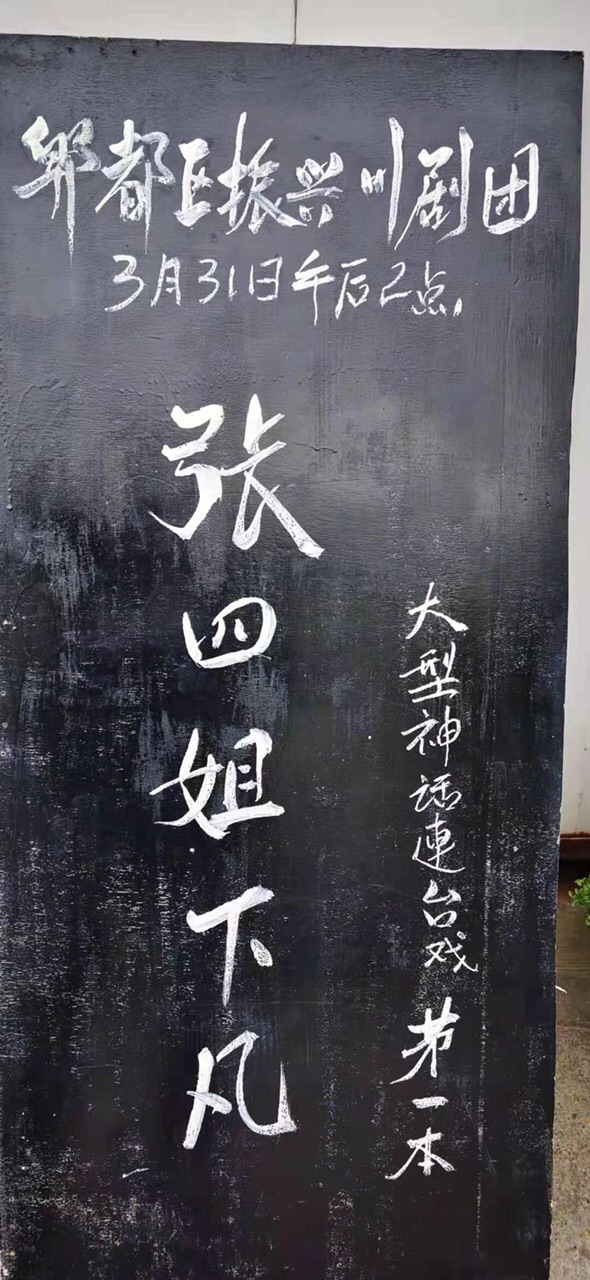 郫都区振兴川剧团
3月31日午后2点
大型神话連台戏 第一本
张四姐下凡